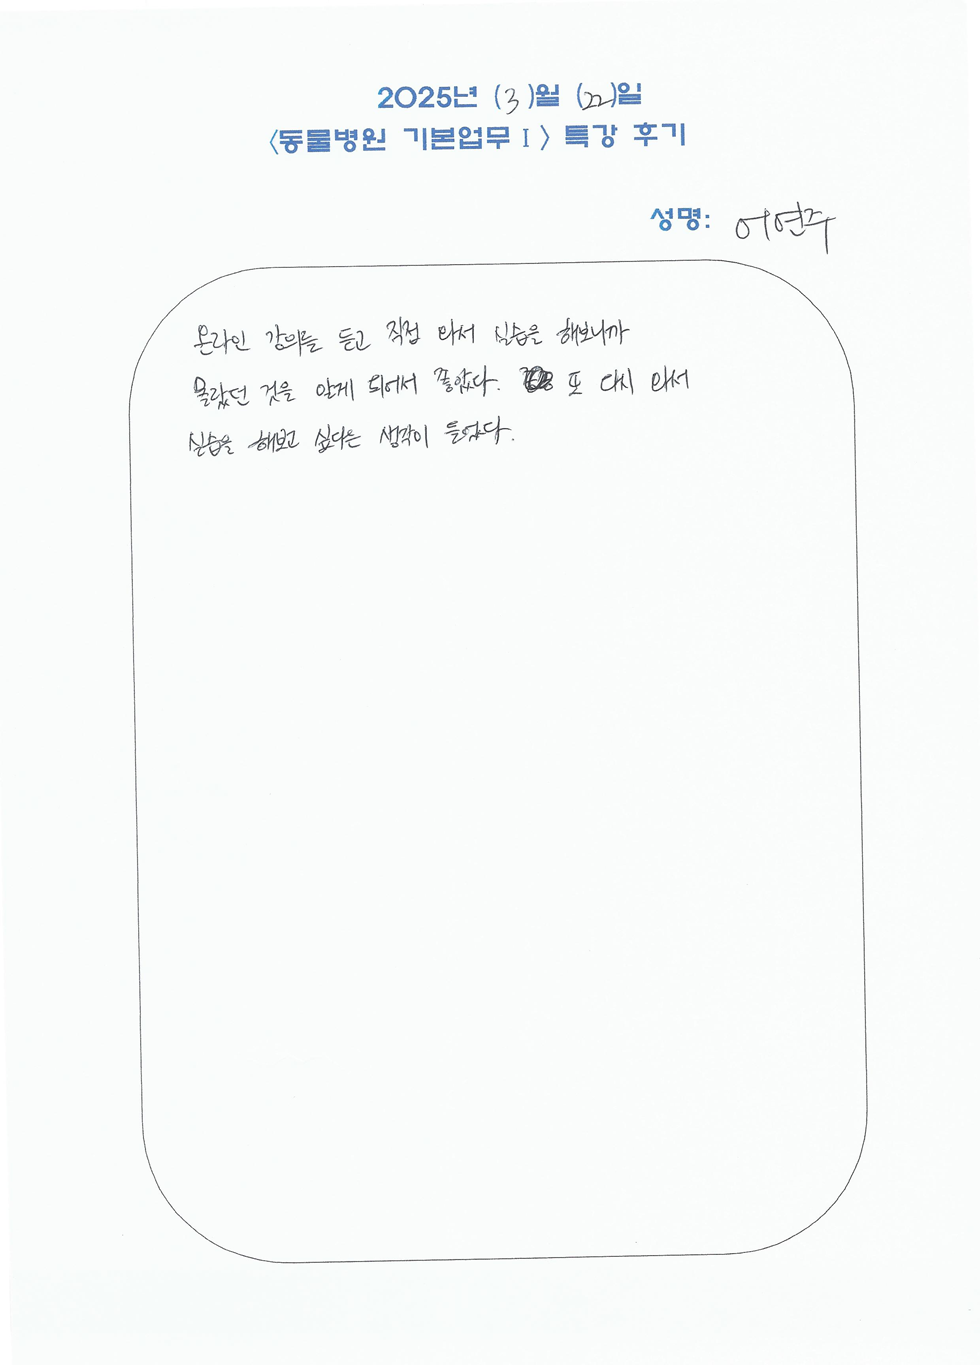 2025년 (3)월 (22)일
<동물병원 기본업무 I> 특강 후기
성명: 어연주
온라인 강의를 듣고 직접 와서 실습을 해보니까
몰랐던 것을 알게 되어서 좋았다. 또 다시 와서
실습을 해보고 싶다는 생각이 들었다.